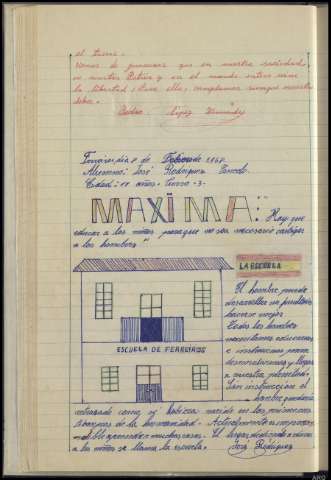 el turno.
vamos de procurar que en nuestra sociedad,
en nuestra Patria y en el mundo entero reine
la libertad. Para ello, cumplamos siempre nuestro
deber.
Pedro López
Ferreries, día 8 de Febrero de 196
Alumno: José Rodríguez
Edad: 11 años. Curso - 3-
MAXIMA: "Hay que
educar a los niños para que no sea necesario castigar
a los hombres"
LA ESCUELA
ESCUELA DE FERRERIAS
El hombre puede
desarrollar su
hacerse mejor.
Todos los hombres
necesitamos educarnos
e instruirnos para
desenvolvernos y llegar
a nuestra plenitud.
Sin instrucción el
hombre quedaría
atrasado como si hubiera nacido en los primeros
tiempos de la humanidad. Actualmente es
aprender muchas cosas. El lugar dedicado a educar
a los niños se llama la escuela.
José Rodríguez